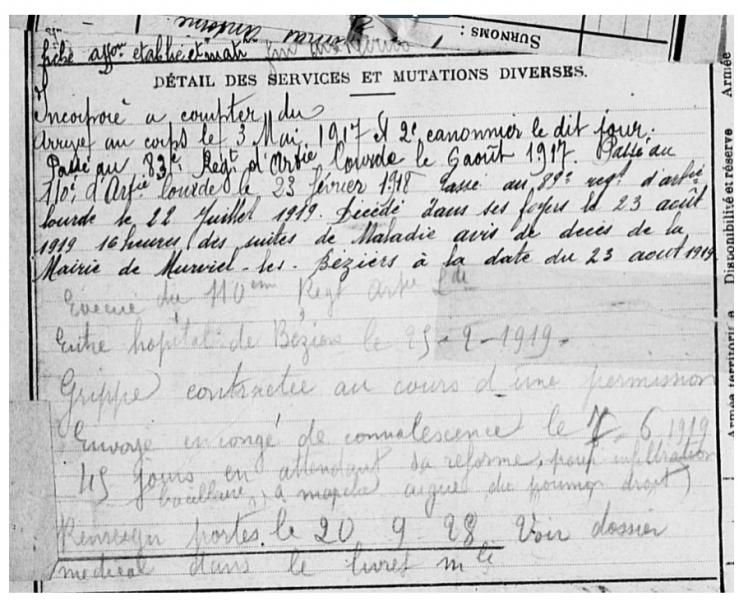 SURNOMS :
fiche aff^on établie et matr
DÉTAIL DES SERVICES ET MUTATIONS DIVERSES.
Incorporé a compter du
arrivé au corps le 3 Mai 1917 et 2e canonnier le dit jour.
Passé au 83e Regt d'Artie lourde le 6 août 1917. Passé au
110e d'Artie lourde le 23 février 1918 Passé au 89e regt d'artie
lourde le 22 Juillet 1919. Décédé dans ses foyers le 23 août
1919 16 heures des suites de Maladie avis de décès de la
Mairie de Murviel-les-Béziers à la date du 23 août 1919
Evacué du 110eme Regt Artie Lde
Entre hopital de Béziers le 25-2-1919.
Grippe contractée au cours d'une permission
Envoyé en congé de convalescence le 7-6 1919
45 jours en attendant sa reforme, pour infiltration
bacillaire, à marche aigue du poumon droit)
Renseign portes le 20 9 28 Voir dossier
medical dans le livret mle
Disponibilité et réserve
Armée
Armée territoriale